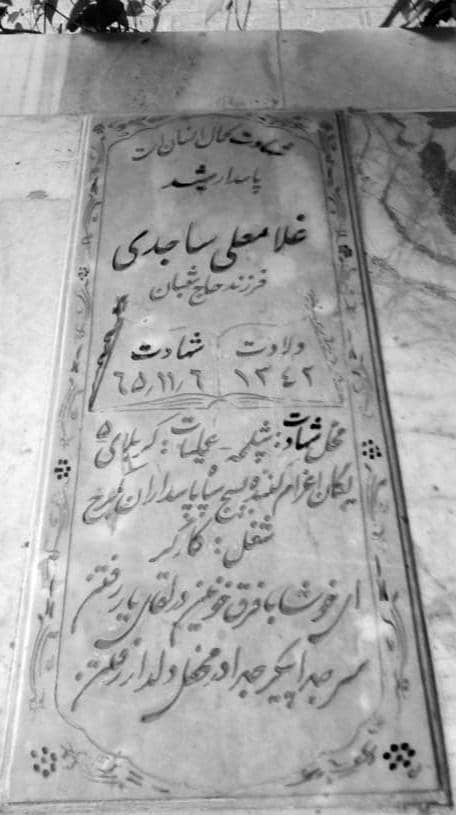 شهادت کمال انسان است
پاسدار رشید
غلامعلی ساجدی
فرزند حاج شعبان
ولادت شهادت
۱۳۴۲ ۶۵/۱۱/۶
محل شهادت: شلمچه - عملیات: کربلای ۵
یگان اعزام کننده بسیج سپاه پاسداران کرج
شغل: کارگر
ای خوشا با فرق خونین در لقای یار رفتن
سر جدا پیکر جدا در محفل دلدار رفتن